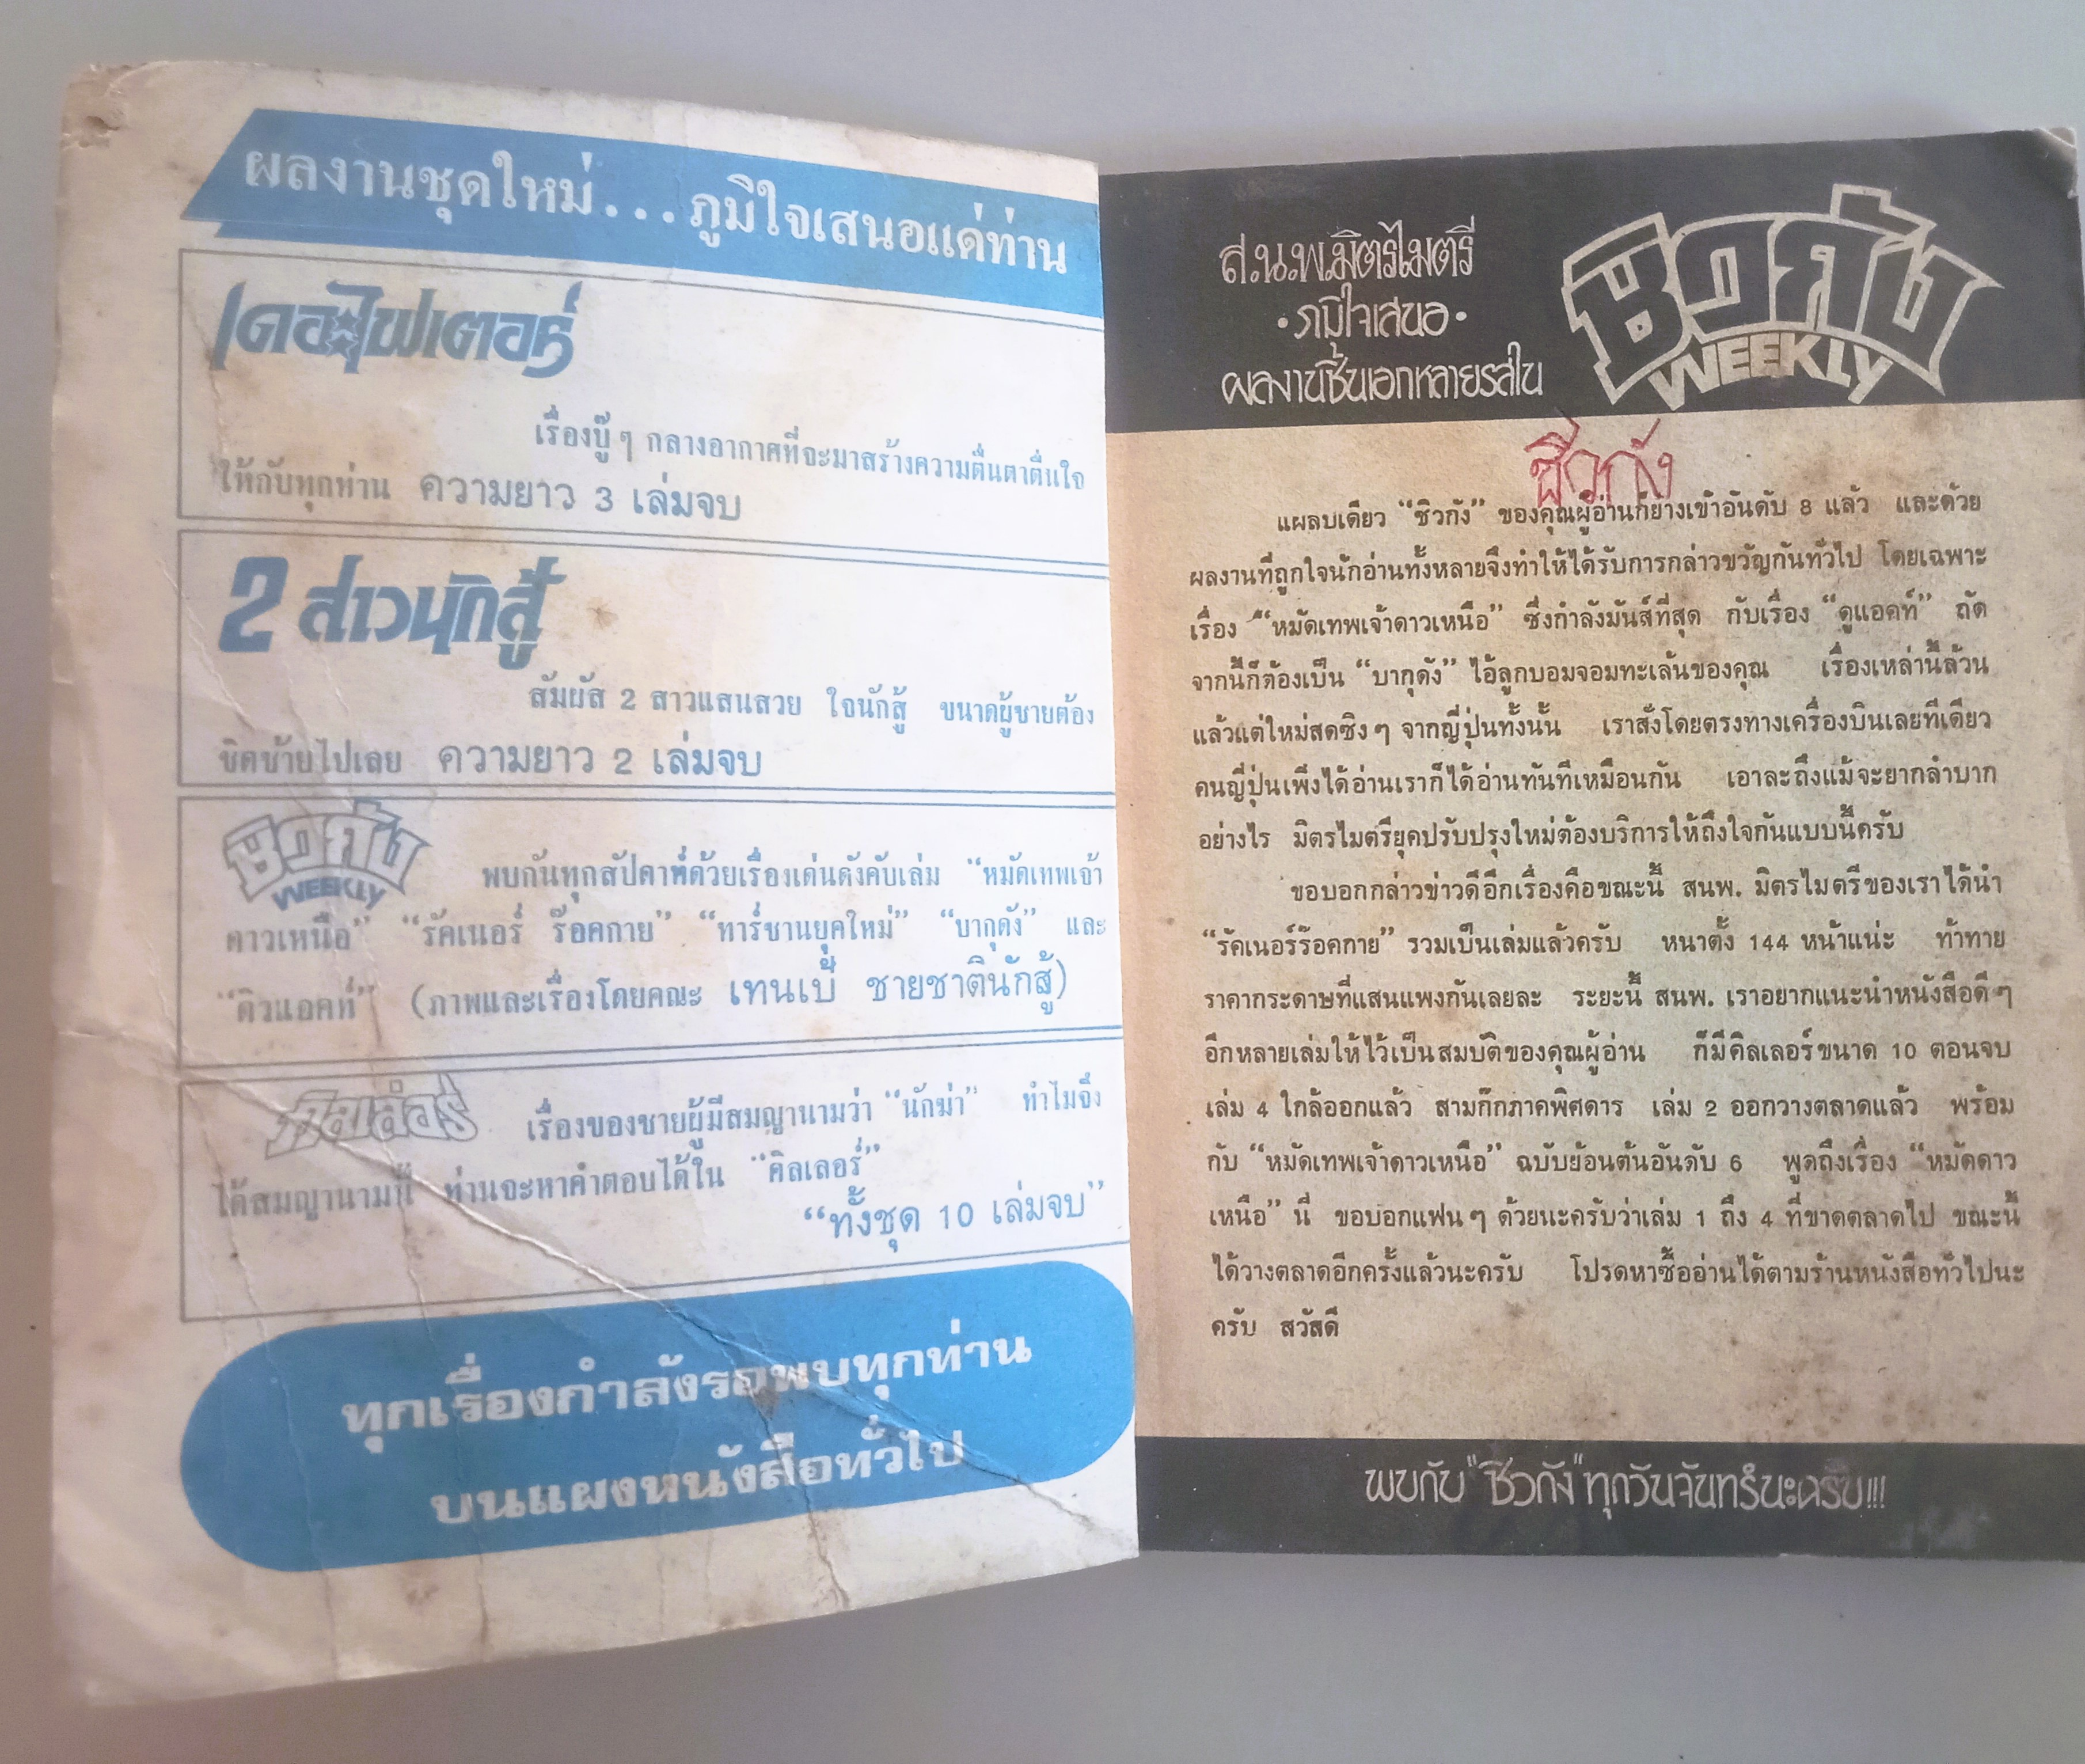 ผลงานชุดใหม่...ภูมิใจเสนอแด่ท่าน
เดอะไฟเตอร์
เรื่องบู๊ ๆ กลางอากาศที่จะมาสร้างความตื่นตาตื่นใจ
ให้กับทุกท่าน ความยาว 3 เล่มจบ
2 สาวนักสู้
สัมผัส 2 สาวแสนสวย ใจนักสู้ ขนาดผู้ชายต้อง
ชิดซ้ายไปเลย ความยาว 2 เล่มจบ
ชิวกัง
WEEKLY
พบกันทุกสัปดาห์ด้วยเรื่องเด่นดังคับเล่ม “หมัดเทพเจ้า
ดาวเหนือ” “รัคเนอร์ ร๊อคกาย” “ทาร์ซานยุคใหม่” “บากุดัง” และ
“ดิวแอคท์” (ภาพและเรื่องโดยคณะ เทนเบ้ ชายชาตินักสู้)
คิลเล่อร์
เรื่องของชายผู้มีสมญานามว่า “นักฆ่า” ทำไมจึง
ได้สมญานามนี้ ท่านจะหาคำตอบได้ใน “คิลเลอร์”
“ทั้งชุด 10 เล่มจบ”
ทุกเรื่องกำลังรอพบทุกท่าน
บนแผงหนังสือทั่วไป
ส.น.พ.มิตรไมตรี
•ภูมิใจเสนอ•
ผลงานชิ้นเอกหลายรสใน
ชิวกัง
WEEKLY
ชิวกัง
แผลบเดียว “ชิวกัง” ของคุณผู้อ่านก็ย่างเข้าอันดับ 8 แล้ว และด้วย
ผลงานที่ถูกใจนักอ่านทั้งหลายจึงทำให้ได้รับการกล่าวขวัญกันทั่วไป โดยเฉพาะ
เรื่อง “หมัดเทพเจ้าดาวเหนือ” ซึ่งกำลังมันส์ที่สุด กับเรื่อง “ดูแอคท์” ถัด
จากนี้ก็ต้องเป็น “บากุดัง” ไอ้ลูกบอมจอมทะเล้นของคุณ เรื่องเหล่านี้ล้วน
แล้วแต่ใหม่สดซิง ๆ จากญี่ปุ่นทั้งนั้น เราสั่งโดยตรงทางเครื่องบินเลยทีเดียว
คนญี่ปุ่นเพิ่งได้อ่านเราก็ได้อ่านทันทีเหมือนกัน เอาละถึงแม้จะยากลำบาก
อย่างไร มิตรไมตรียุคปรับปรุงใหม่ต้องบริการให้ถึงใจกันแบบนี้ครับ
ขอบอกกล่าวข่าวดีอีกเรื่องคือขณะนี้ สนพ. มิตรไมตรีของเราได้นำ
“รัคเนอร์ร๊อคกาย” รวมเป็นเล่มแล้วครับ หนาตั้ง 144 หน้าแน่ะ ท้าทาย
ราคากระดาษที่แสนแพงกันเลยละ ระยะนี้ สนพ. เราอยากแนะนำหนังสือดี ๆ
อีกหลายเล่มให้ไว้เป็นสมบัติของคุณผู้อ่าน ก็มีคิลเลอร์ขนาด 10 ตอนจบ
เล่ม 4 ใกล้ออกแล้ว สามก๊กภาคพิศดาร เล่ม 2 ออกวางตลาดแล้ว พร้อม
กับ “หมัดเทพเจ้าดาวเหนือ” ฉบับย้อนต้นอันดับ 6 พูดถึงเรื่อง “หมัดดาว
เหนือ” นี่ ขอบอกแฟน ๆ ด้วยนะครับว่าเล่ม 1 ถึง 4 ที่ขาดตลาดไป ขณะนี้
ได้วางตลาดอีกครั้งแล้วนะครับ โปรดหาซื้ออ่านได้ตามร้านหนังสือทั่วไปนะ
ครับ สวัสดี
พบกับ “ชิวกัง” ทุกวันจันทร์นะครับ!!!